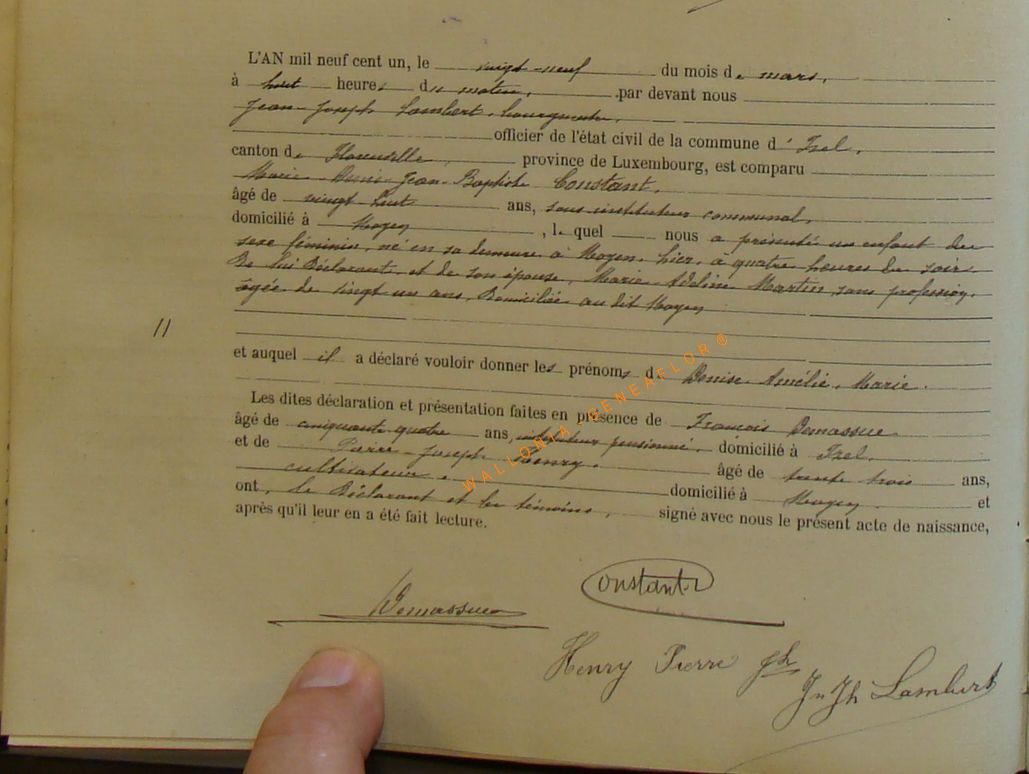 L'AN mil neuf cent un, le vingt-neuf du mois de mars,
à huit heures du matin, par devant nous
Jean-Joseph Lambert, bourgmestre,
officier de l'état civil de la commune d'Izel,
canton de Florenville, province de Luxembourg, est comparu
Marie-Denis-Jean-Baptiste Constant,
âgé de vingt huit ans, sous-instituteur communal,
domicilié à Moyen, lequel nous a présenté un enfant du
sexe féminin, né en sa demeure à Moyen, hier, à quatre heures du soir,
De lui Déclarant, et de son épouse, Marie-Adeline Martin, sans profession,
âgée de vingt un ans, Domiciliée au dit Moyen
11
et auquel il a déclaré vouloir donner les prénoms de Denise-Amélie-Marie.
Les dites déclaration et présentation faites en présence de François Demassue
âgé de cinquante quatre ans, instituteur pensionné, domicilié à Izel,
et de Pierre-Joseph Henry, âgé de trente trois ans,
cultivateur, domicilié à Moyen, et
ont, le Déclarant et les témoins, signé avec nous le présent acte de naissance,
après qu'il leur en a été fait lecture.
WALLONIA-GENEAFLOR®
Constant
Demassue
Henry Pierre Jh
Jn Jh Lambert